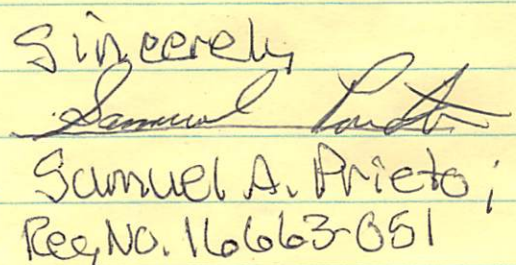 Sincerely,
Samuel Prieto
Samuel A. Prieto;
Reg, No. 16663-051